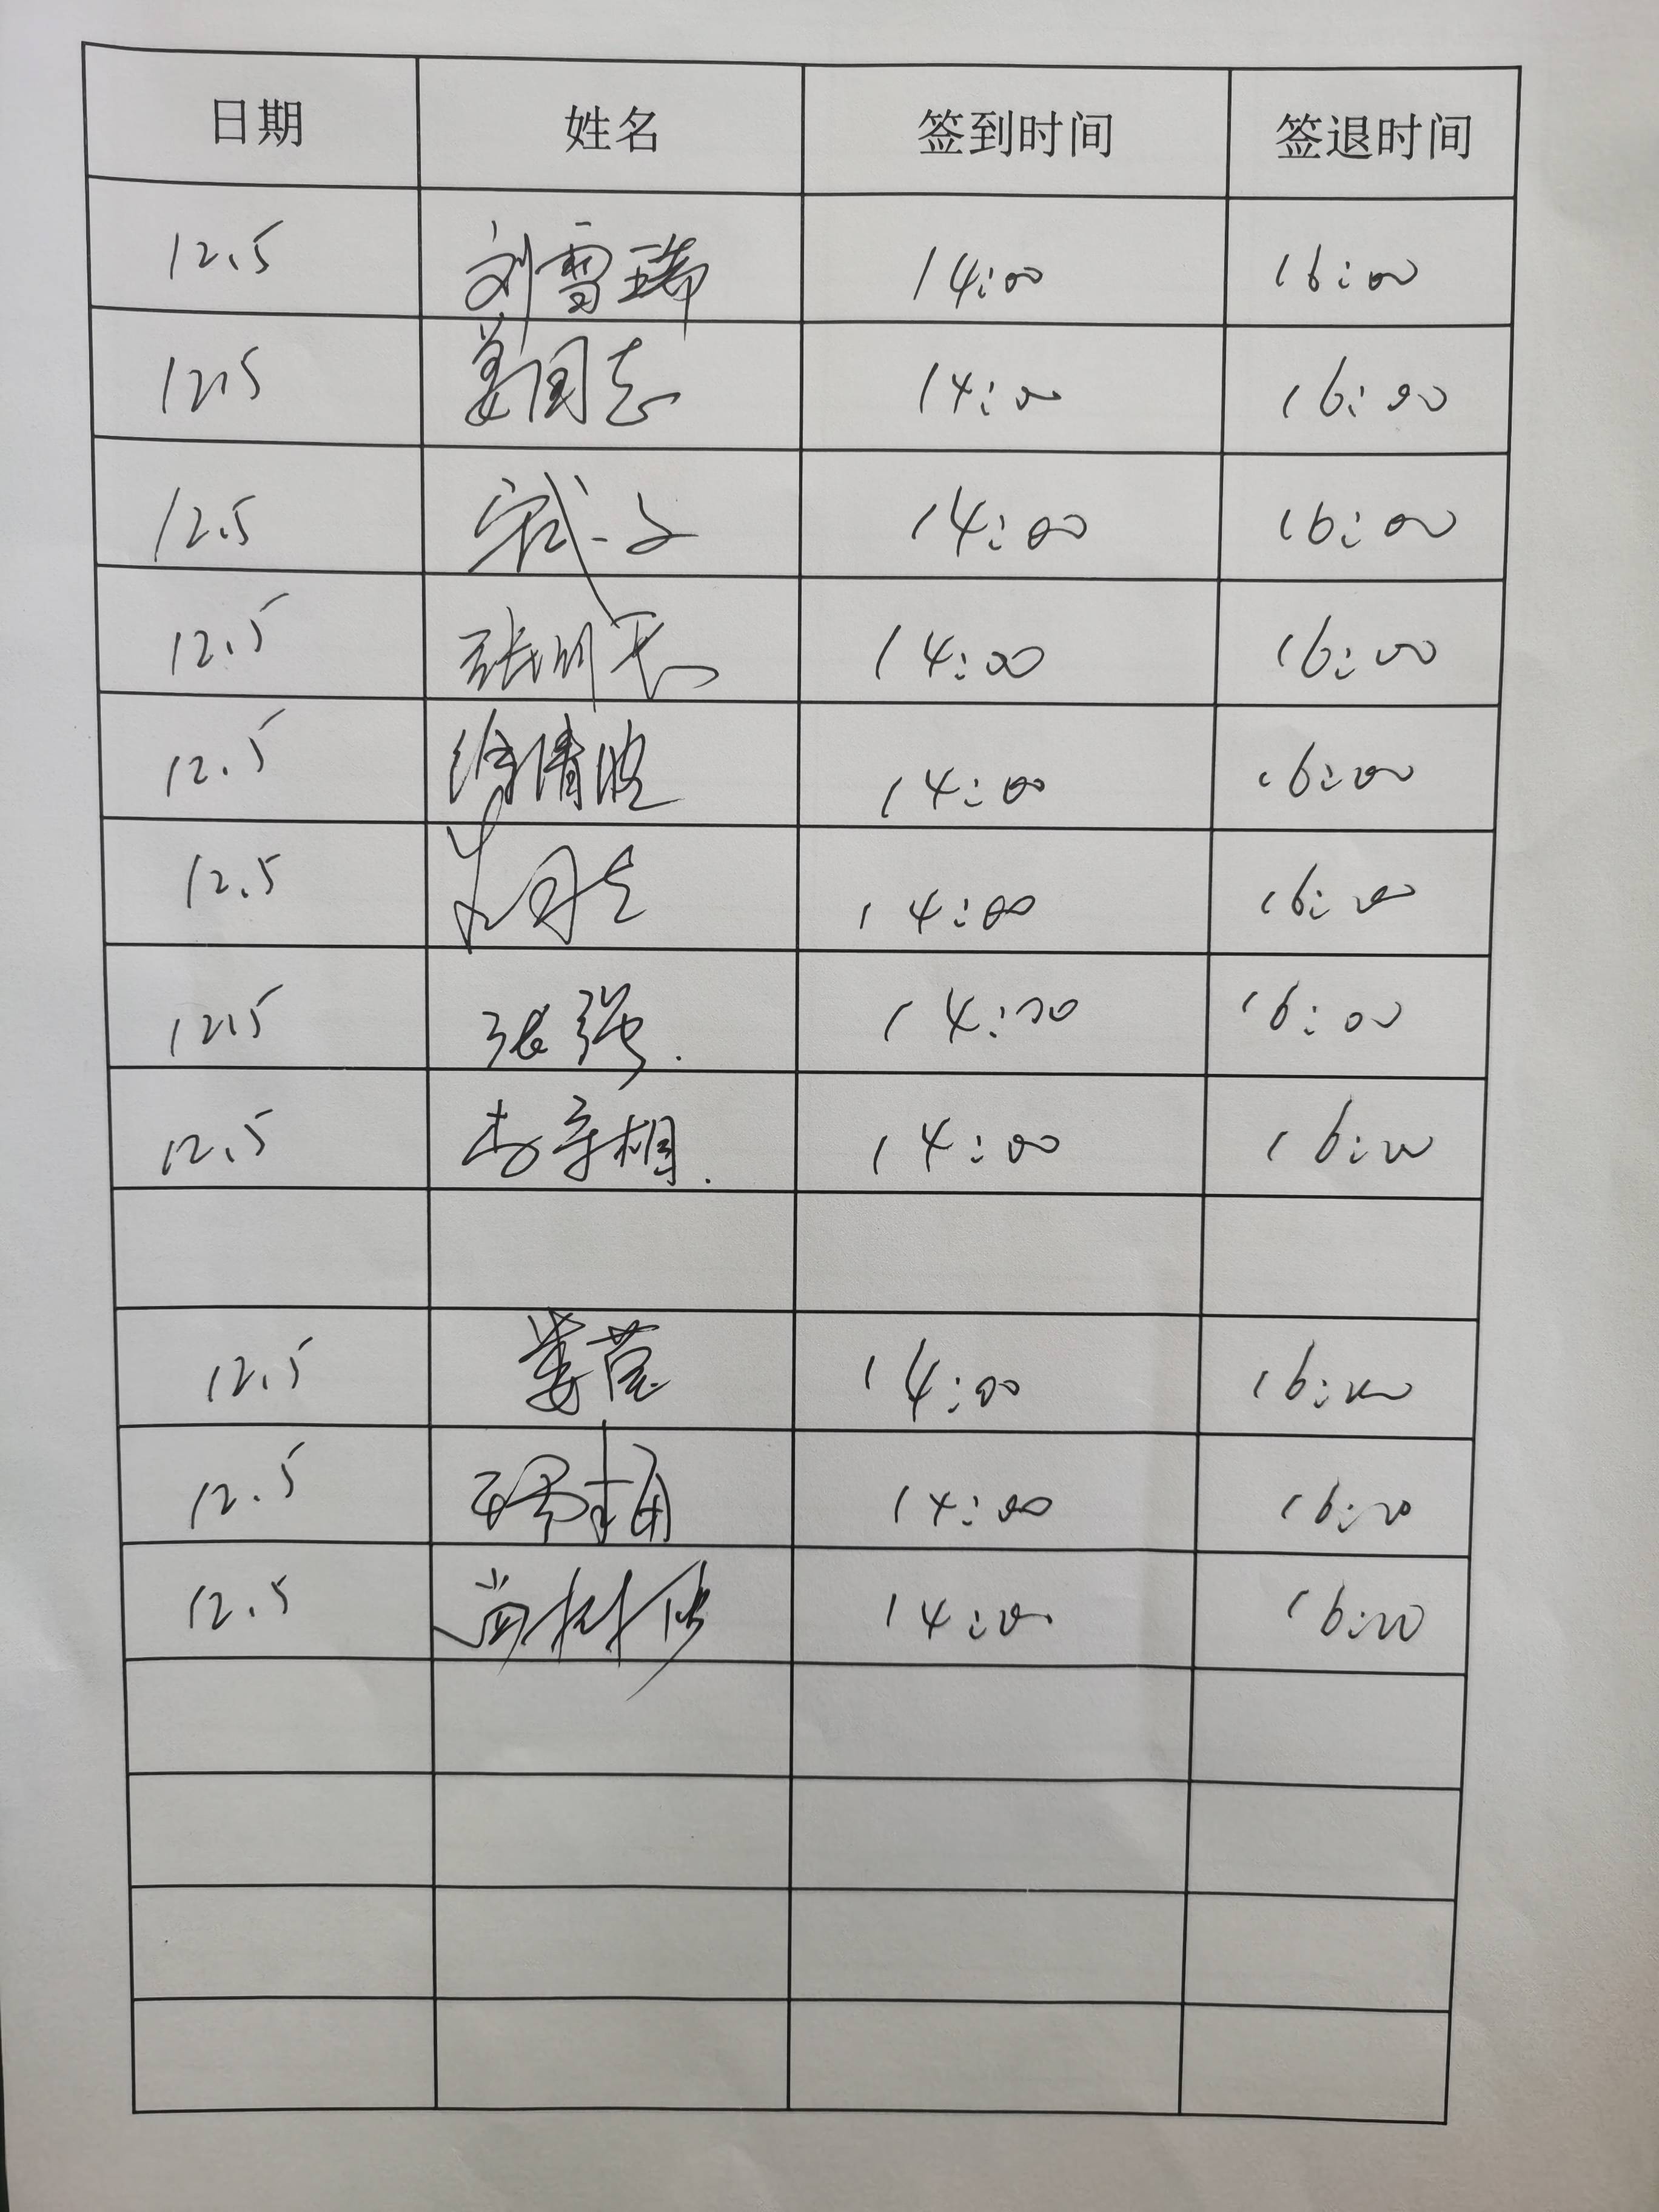 日期 姓名 签到时间 签退时间
12.5 刘雪瑞 14:00 16:00
12.5 姜国志 14:00 16:00
12.5 14:00 16:00
12.5 张明 14:00 16:00
12.5 徐清波 14:00 16:00
12.5 14:00 16:00
12.5 张强. 14:00 16:00
12.5 李彦相. 14:00 16:00
12.5 娄莹 14:00 16:00
12.5 14:00 16:00
12.5 尚树伟 14:00 16:00